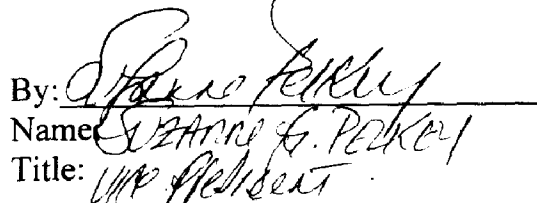 By: Suzanne Perkey
Name: Suzanne G. Perkey
Title: Vice President